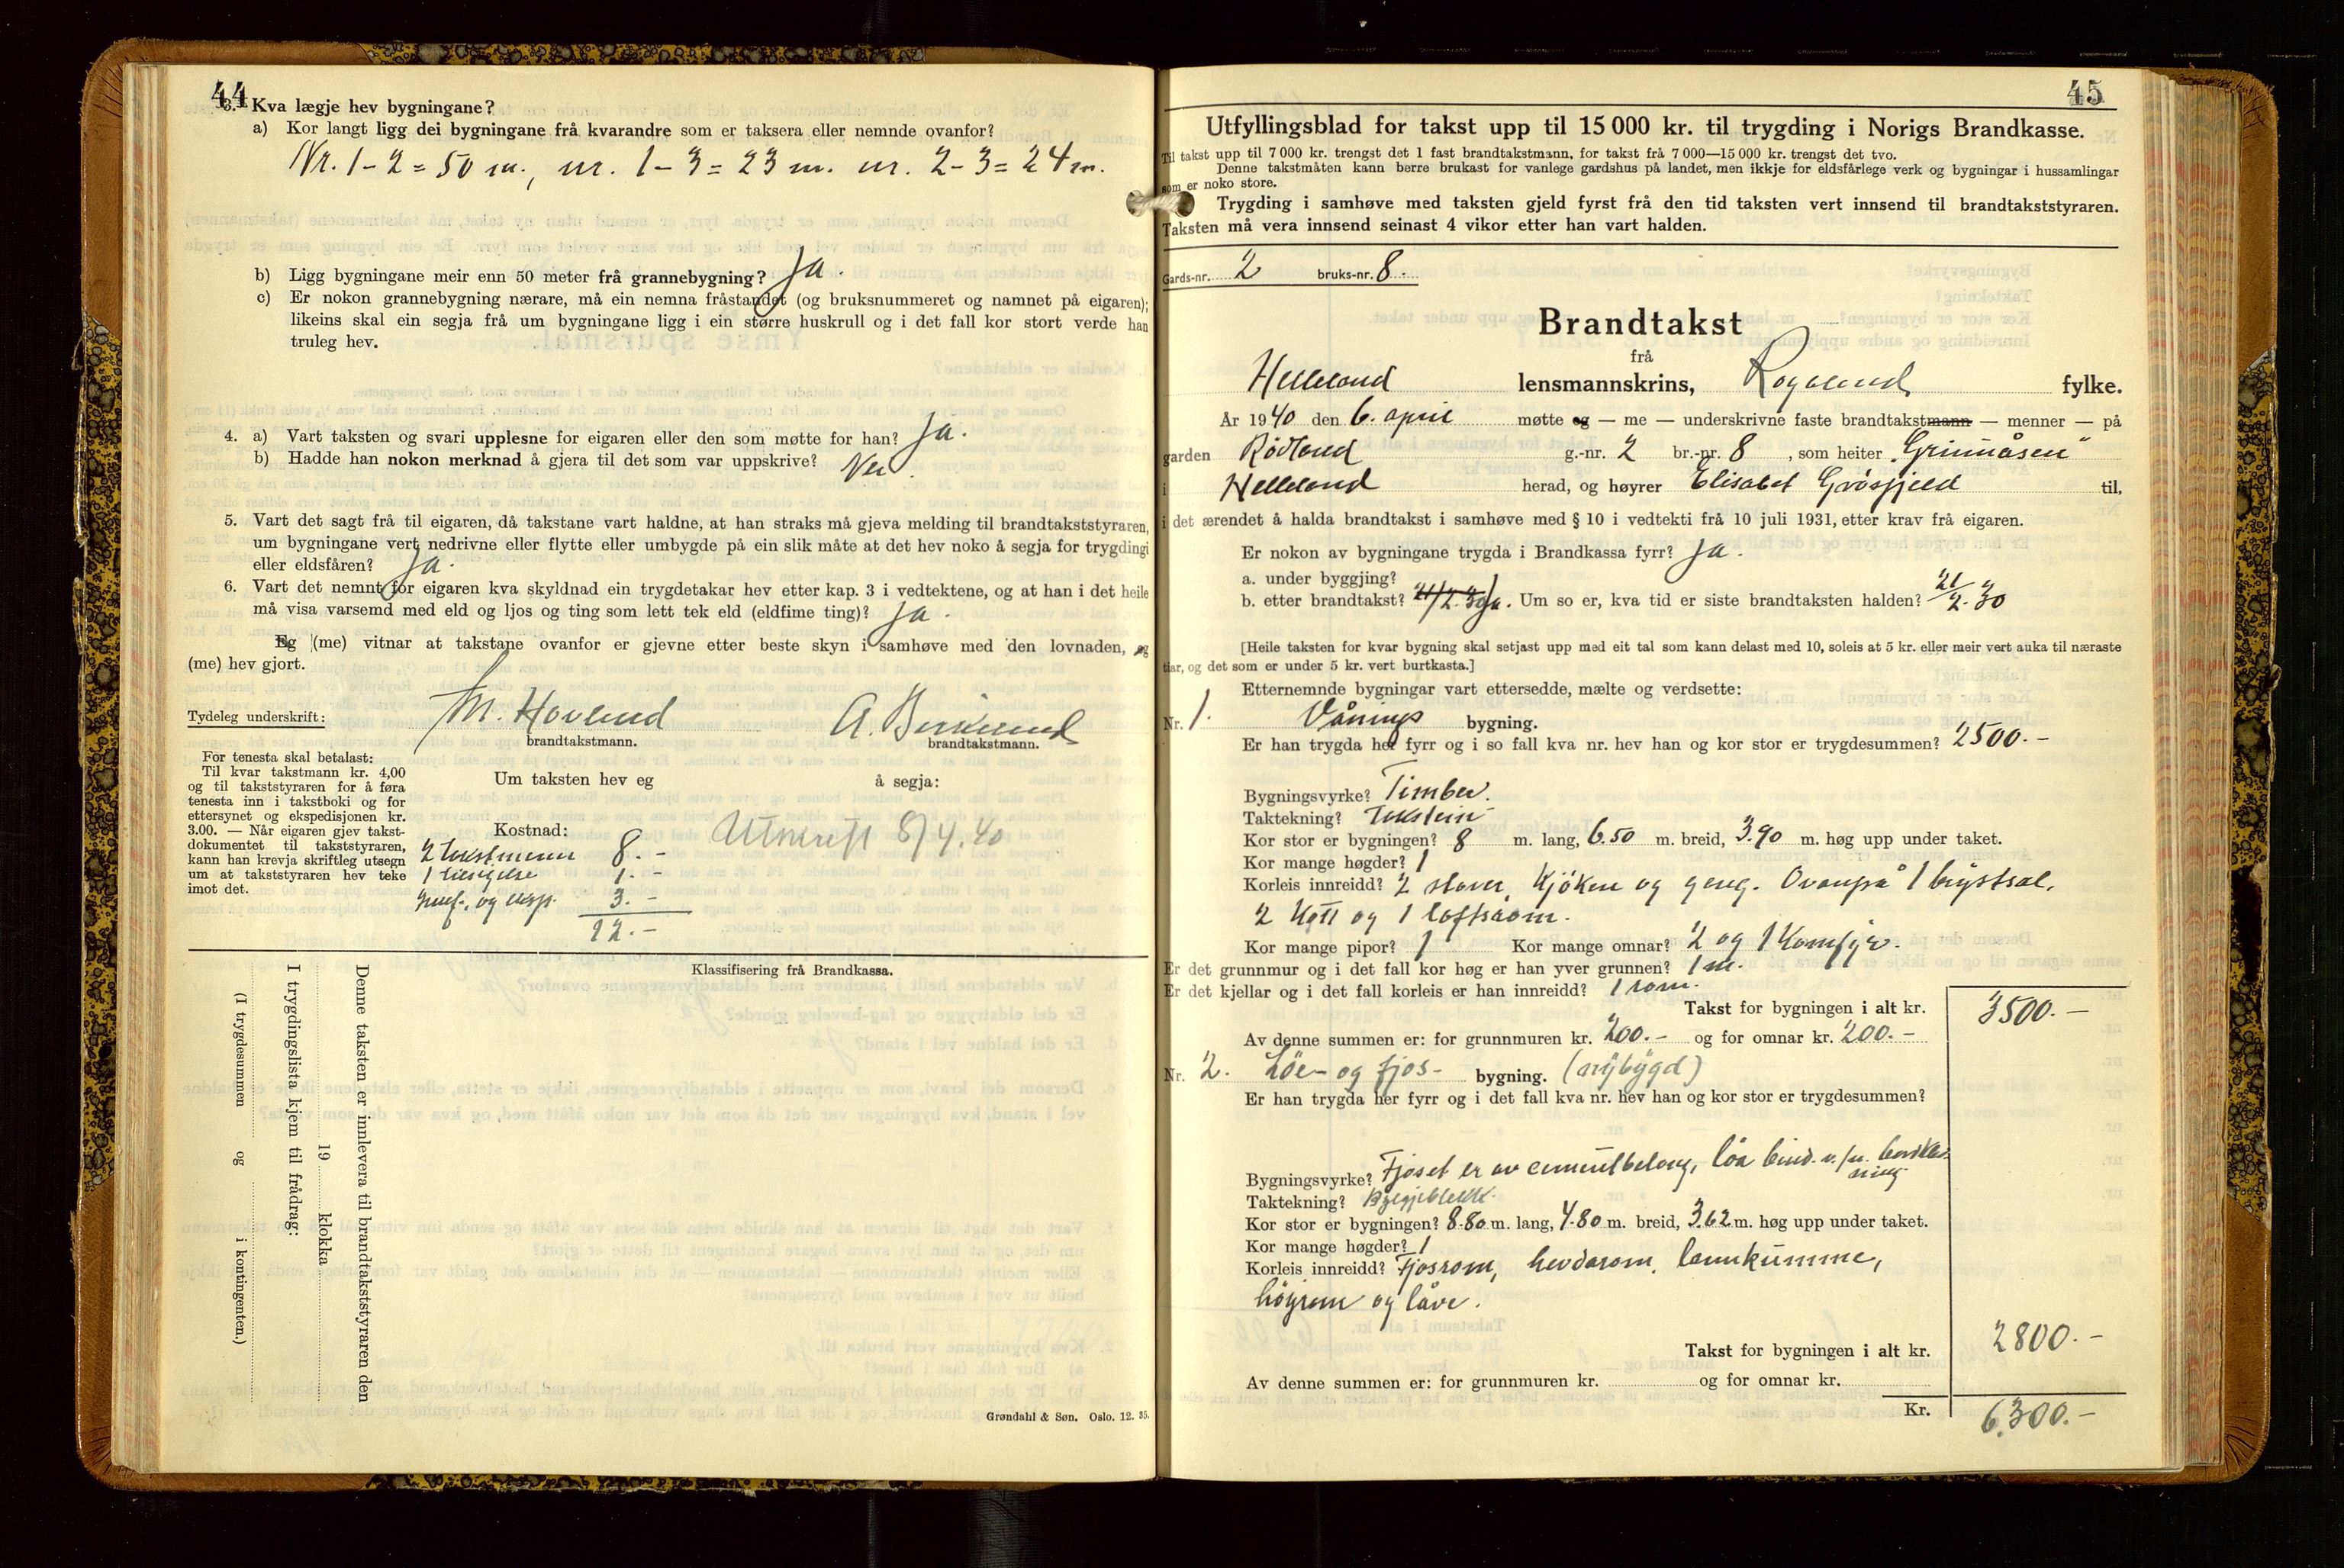 44
3. Kva lægje hev bygningane?
a) Kor langt ligg dei bygningane frå kvarandre som er taksera eller nemnde ovanfor?
Nr. 1 - 2 = 50 m., nr. 1 - 3 = 23 m. nr. 2 - 3 = 24 m.
b) Ligg bygningane meir enn 50 meter frå grannebygning? Ja.
c) Er nokon grannebygning nærare, må ein nemna fråstandet (og bruksnummeret og namnet på eigaren);
likeins skal ein segja frå um bygningane ligg i ein større huskrull og i det fall kor stort verde han
truleg hev.
4. a) Vart taksten og svari upplesne for eigaren eller den som møtte for han? Ja.
b) Hadde han nokon merknad å gjera til det som var uppskrive? Nei
5. Vart det sagt frå til eigaren, då takstane vart haldne, at han straks må gjeva melding til brandtakststyraren,
um bygningane vert nedrivne eller flytte eller umbygde på ein slik måte at det hev noko å segja for trygdingi
eller eldsfåren? Ja.
6. Vart det nemnt for eigaren kva skyldnad ein trygdetakar hev etter kap. 3 i vedtektene, og at han i det heile
må visa varsemd med eld og ljos og ting som lett tek eld (eldfime ting)? Ja.
Eg (me) vitnar at takstane ovanfor er gjevne etter beste skyn i samhøve med den lovnaden, eg
(me) hev gjort.
Tydeleg underskrift: M. Hovland A. Birkeland
brandtakstmann. brandtakstmann.
For tenesta skal betalast:
Til kvar takstmann kr. 4,00
og til takststyraren for å føra
tenesta inn i takstboki og for
ettersynet og ekspedisjonen kr.
3.00. — Når eigaren gjev takst-
dokumentet til takststyraren,
kann han krevja skriftleg utsegn
um at takststyraren hev teke
imot det.
Um taksten hev eg å segja:
Kostnad: Utskrift 8/4.40
2 takstmenn 8. -
1 1. -
og eksp. 3. -
12. -
Klassifisering frå Brandkassa.
Denne taksten er innlevera til brandtakststyraren den
19 klokka
I trygdingslista kjem til frådrag:
(I trygdesummen og i kontingenten.)
Grøndahl & Søn. Oslo. 12. 35.
45
Utfyllingsblad for takst upp til 15 000 kr. til trygding i Norigs Brandkasse.
Til takst upp til 7 000 kr. trengst det 1 fast brandtakstmann, for takst frå 7 000—15 000 kr. trengst det tvo.
Denne takstmåten kann berre brukast for vanlege gardshus på landet, men ikkje for eldsfårlege verk og bygningar i hussamlingar
som er noko store.
Trygding i samhøve med taksten gjeld fyrst frå den tid taksten vert innsend til brandtakststyraren.
Taksten må vera innsend seinast 4 vikor etter han vart halden.
Gards-nr. 2 bruks-nr. 8.
Brandtakst
frå
Helleland lensmannskrins, Rogaland fylke.
År 1940 den 6. april møtte eg — me — underskrivne faste brandtakstmann — menner — på
garden Rødland g.-nr. 2 br.-nr. 8, som heiter "Grinnåsen"
i Helleland herad, og høyrer Elisabet Gråsfjeld til,
i det ærendet å halda brandtakst i samhøve med § 10 i vedtekti frå 10 juli 1931, etter krav frå eigaren.
Er nokon av bygningane trygda i Brandkassa fyrr? Ja.
a. under byggjing?
b. etter brandtakst? 21/2.30 Ja. Um so er, kva tid er siste brandtaksten halden? 21/2-30
[Heile taksten for kvar bygning skal setjast upp med eit tal som kann delast med 10, soleis at 5 kr. eller meir vert auka til næraste
tiar, og det som er under 5 kr. vert burtkasta.]
Etternemnde bygningar vart ettersedde, mælte og verdsette:
Nr. 1. Vånings bygning.
Er han trygda her fyrr og i so fall kva nr. hev han og kor stor er trygdesummen? 2500.-
Bygningsvyrke? Timber.
Taktekning? Takstein
Kor stor er bygningen? 8 m. lang, 6.50 m. breid, 3.90 m. høg upp under taket.
Kor mange høgder? 1
Korleis innreidd? 2 stover, kjøken og gang. Ovanpå 1 brystsal,
2 kott og 1 loftsrom.
Kor mange pipor? 1 Kor mange omnar? 2 og 1 Komfyr.
Er det grunnmur og i det fall kor høg er han yver grunnen? 1 m.
Er det kjellar og i det fall korleis er han innreidd? 1 rom.
Takst for bygningen i alt kr. 3500.-
Av denne summen er: for grunnmuren kr. 200.- og for omnar kr. 200.-
Nr. 2. Löe- og fjos- bygning. (nybygd)
Er han trygda her fyrr og i det fall kva nr. hev han og kor stor er trygdesummen?
Bygningsvyrke? Fjoset er av cementbetong, löa bind.v./m. bordkled
ning
Taktekning? Bylgjeblekk.
Kor stor er bygningen? 8.80 m. lang, 4.80 m. breid, 3.62 m. høg upp under taket.
Kor mange høgder? 1
Korleis innreidd? Fjosrom, hevdarom, lannkumme,
höyrom og låve.
Takst for bygningen i alt kr. 2800.-
Av denne summen er: for grunnmuren kr. og for omnar kr.
Kr. 6300.-